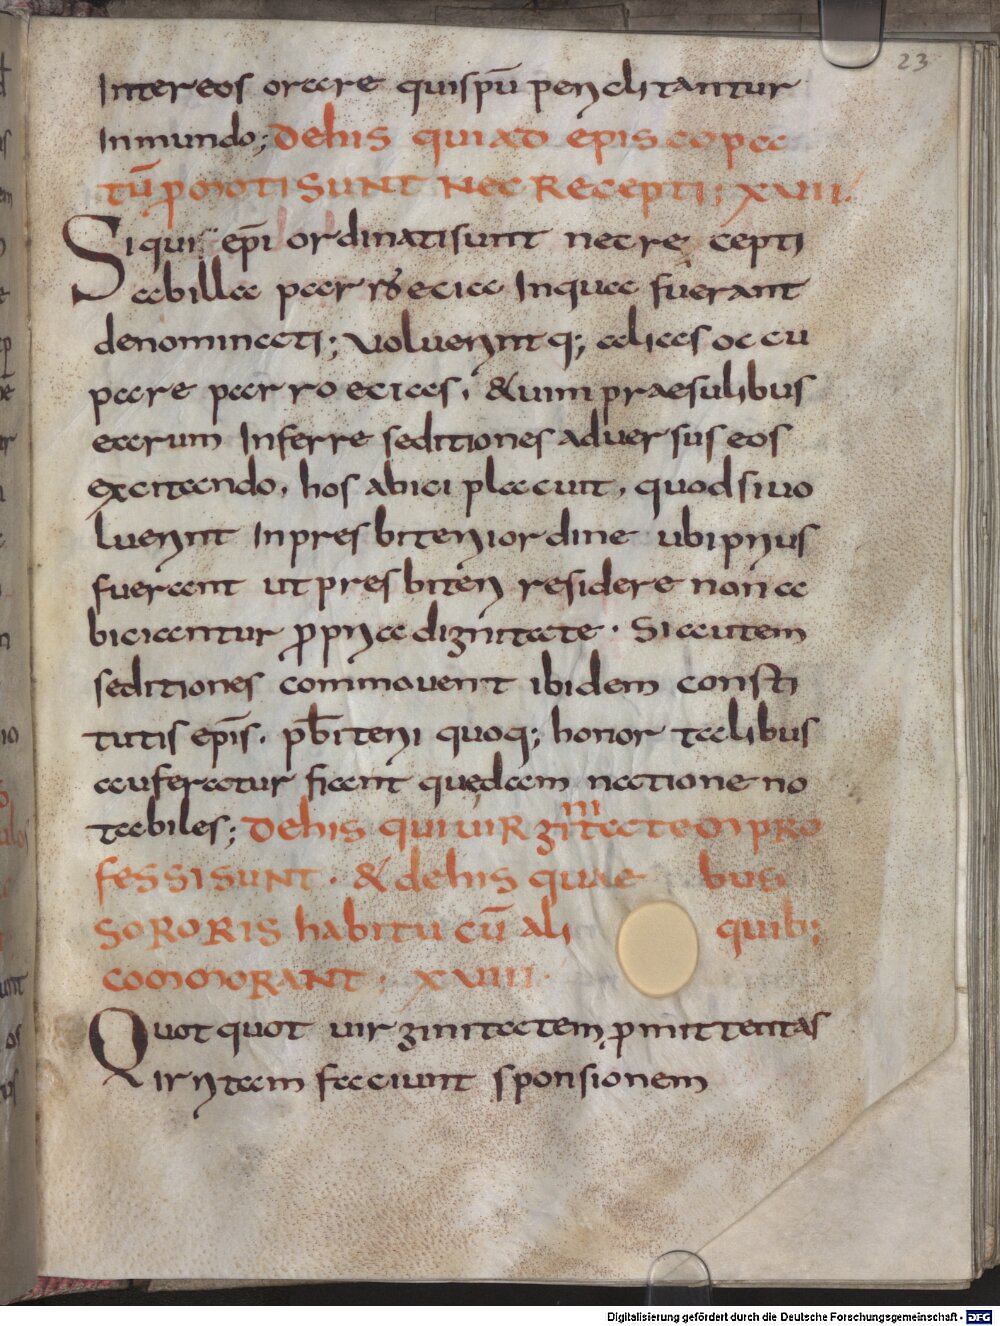 23
Intereos orare quispū periclitantur
Inmundo; Dehis quiad episcopa
tū pmoti sunt nec recepti; XVIII.
Siqui epī ordinatisunt necre cepti
abilla parrŏecia Inqua fuerant
denominati; Voluerintq; alias occu
pare parroecias, &uim praesulibus
earum Inferre seditiones aduersus eos
excitando, hos abici placuit, quodsiuo
luerint Inpresbiteriordine ubiprius
fuerant utpresbiteri residere nona
biciantur ppria dignitate. Siautem
seditiones commouerint ibidem consti
tutis epīs, pb̄iteri quoq; honor talibus
auferatur fiant quędam notione no
tabiles; Dehis quiuirginitatem pro
ni
fessisunt. & dehis quae bus
sororis habitu cū ali quib;
commorant. XVIIII.
Quotquot uirginitatem pmittentas
irritam faciunt sponsionem
Digitalisierung gefördert durch die Deutsche Forschungsgemeinschaft - DFG